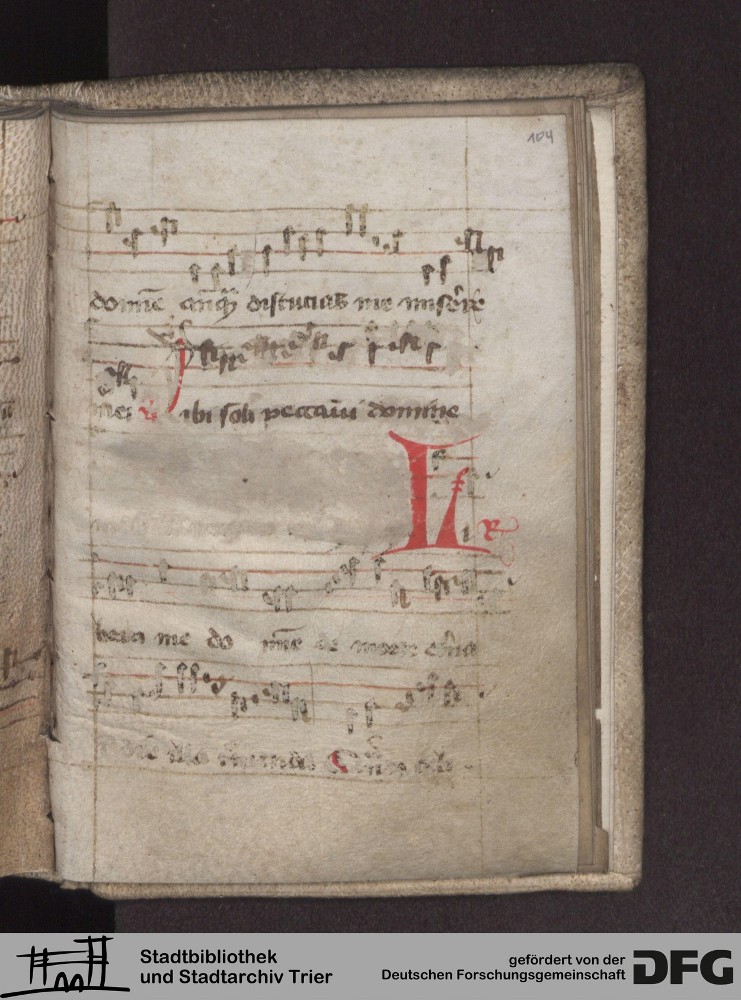 104
domine anq̃ᷓ discucias me misẽre
mei ℣ Tibi soli peccaui domine
Li ℞
bera me do mĩe de morte et̃na
in die illa tremenda Qñ celi
Stadtbibliothek
und Stadtarchiv Trier
gefördert von der
Deutschen Forschungsgemeinschaft
DFG